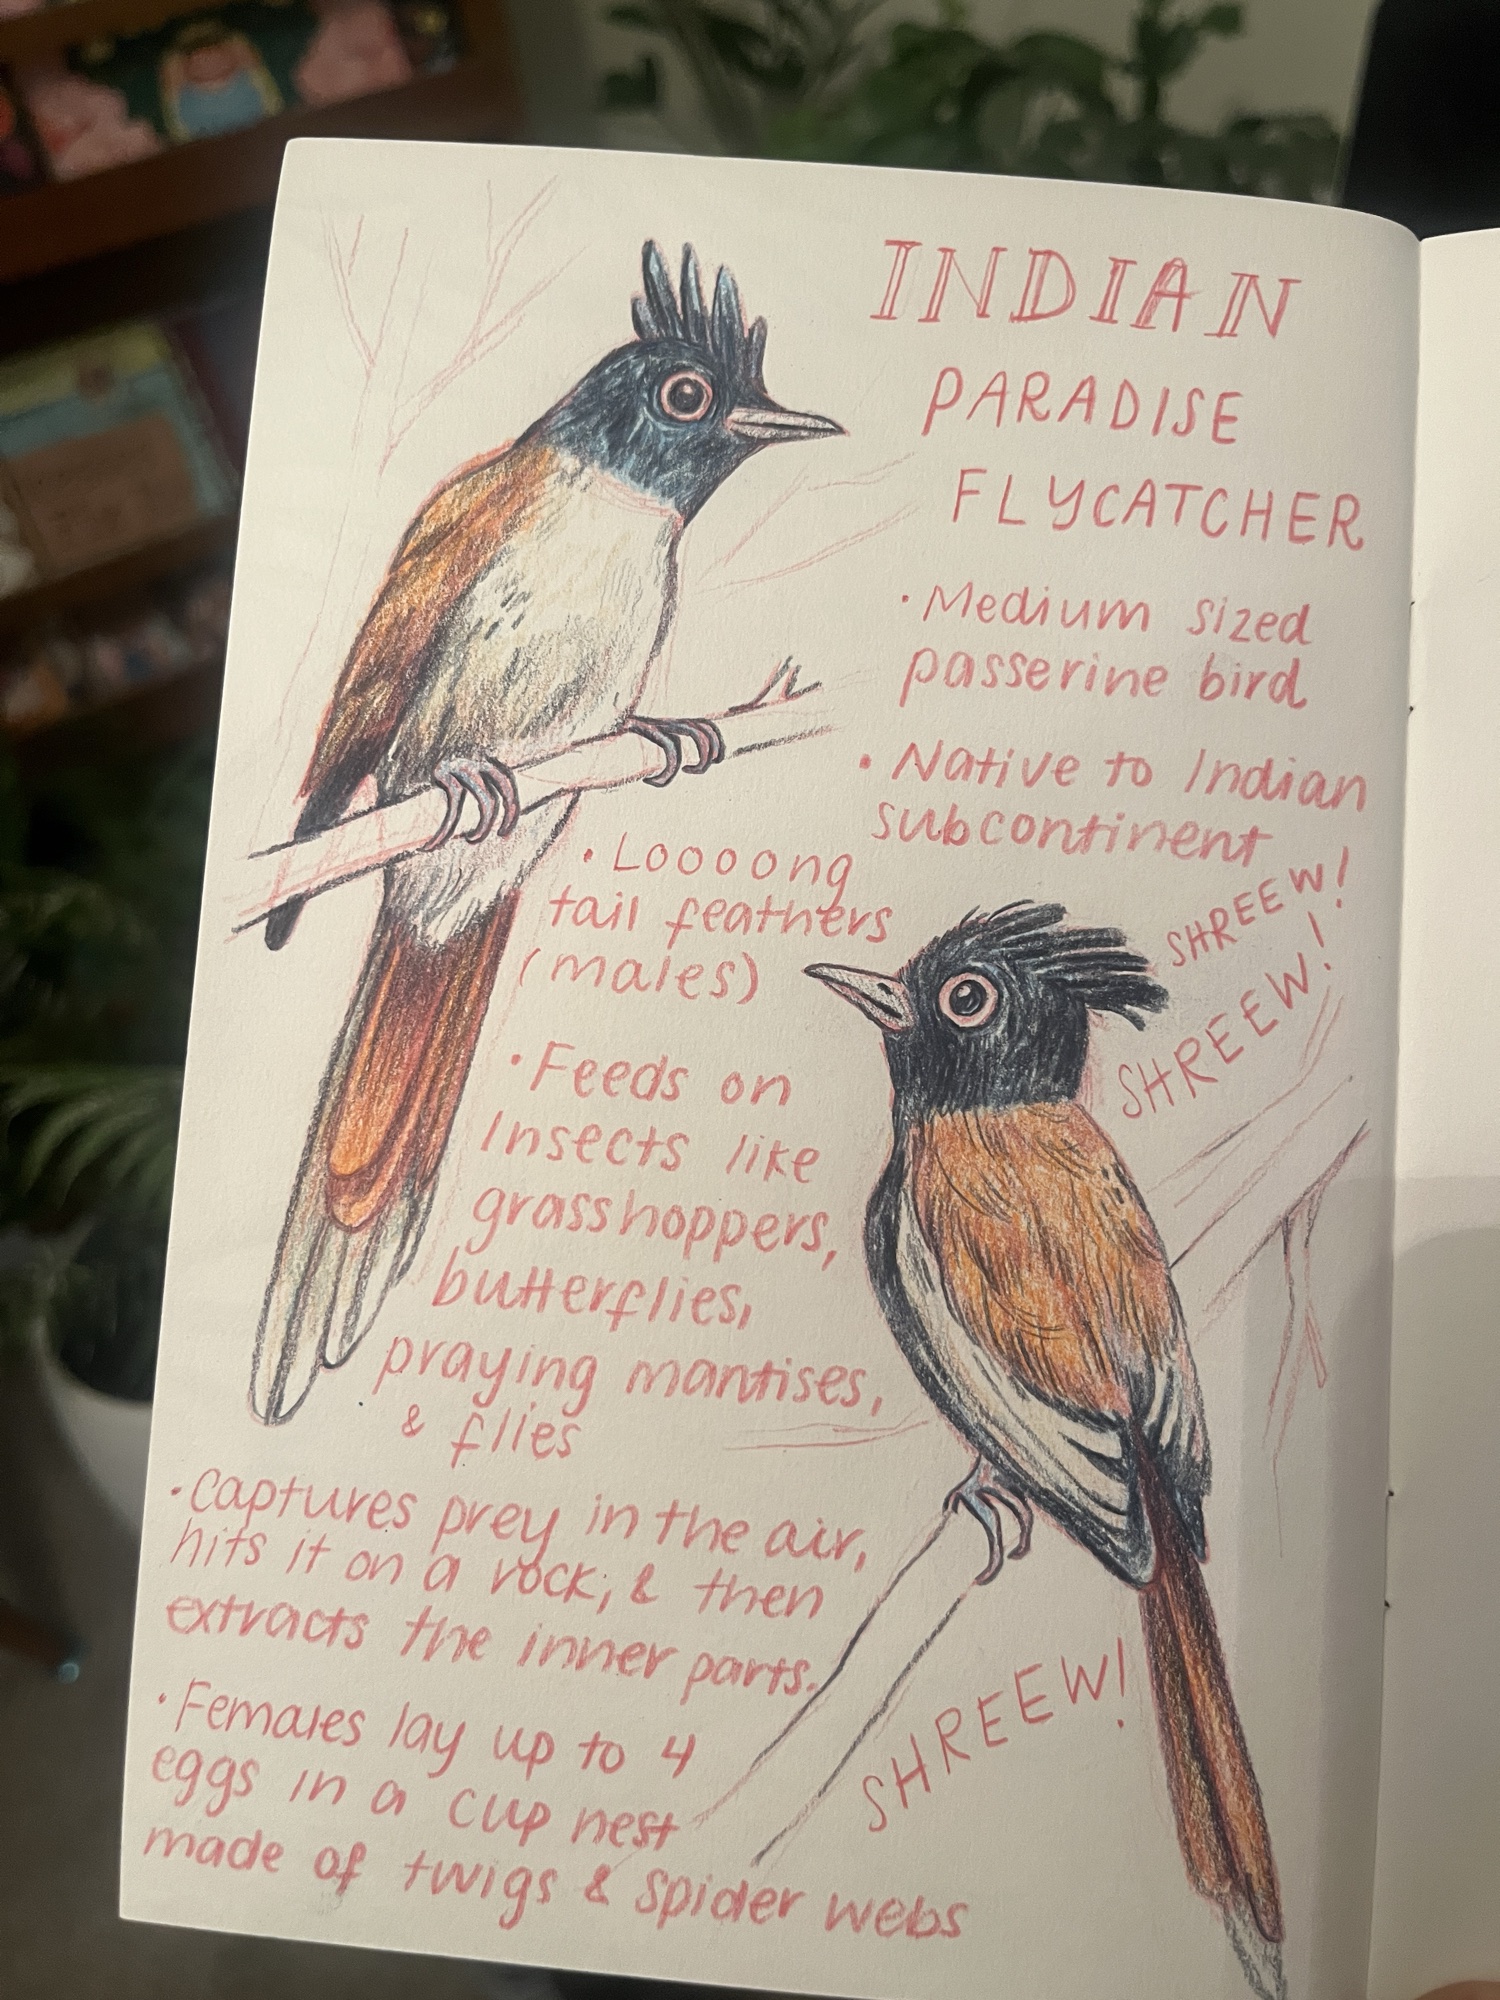 INDIAN
PARADISE
FLYCATCHER
• Medium sized
passerine bird
• Native to Indian
subcontinent
SHREEW!
SHREEW!
• Loooong
tail feathers
(males)
• Feeds on
Insects like
grasshoppers,
butterflies,
praying mantises,
& flies
• Captures prey in the air,
hits it on a rock, & then
extracts the inner parts.
• Females lay up to 4
eggs in a cup nest
made of twigs & spider webs
SHREEW!